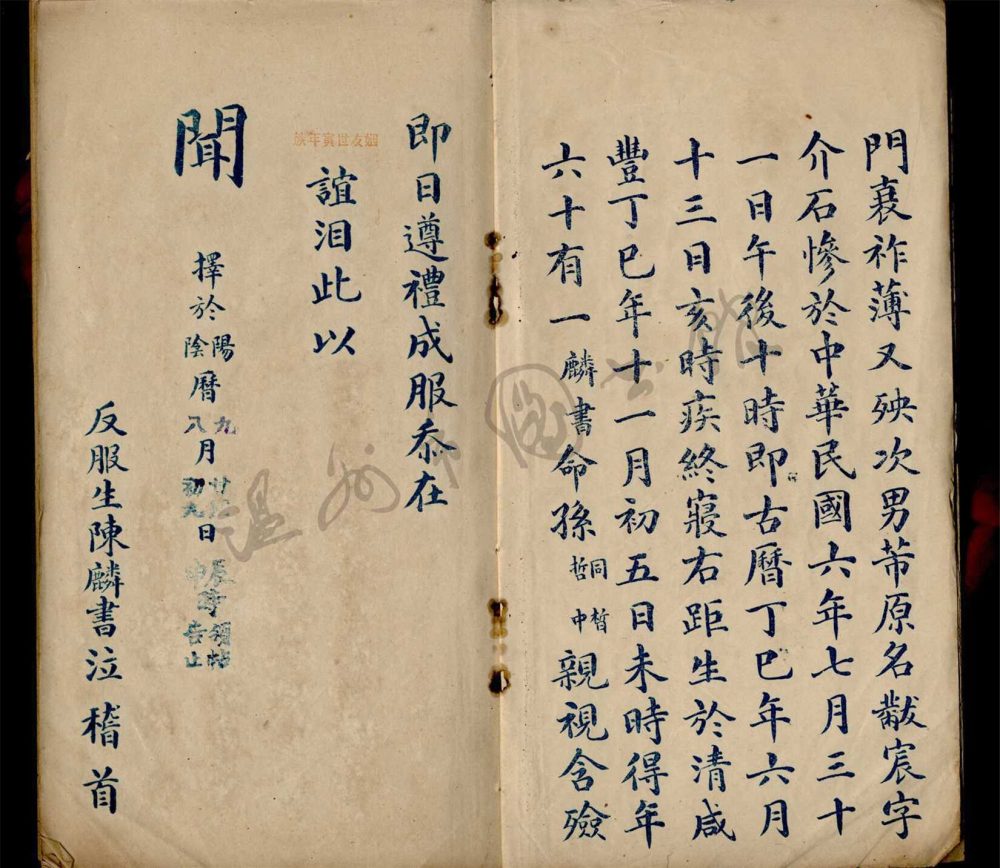 門衰祚薄又殃次男芾原名黻宸字
介石慘於中華民國六年七月三十
一日午後十時即古曆丁巳年六月
十三日亥時疾終寢右距生於清咸
豐丁巳年十一月初五日未時得年
六十有一麟書命孫同晳哲中親視含殮
即日遵禮成服忝在
姻友世寅年族
誼泪此以
聞
擇於陽陰曆九八月廿初九日領帖告止
反服生陳麟書泣稽首
溫州圖書館